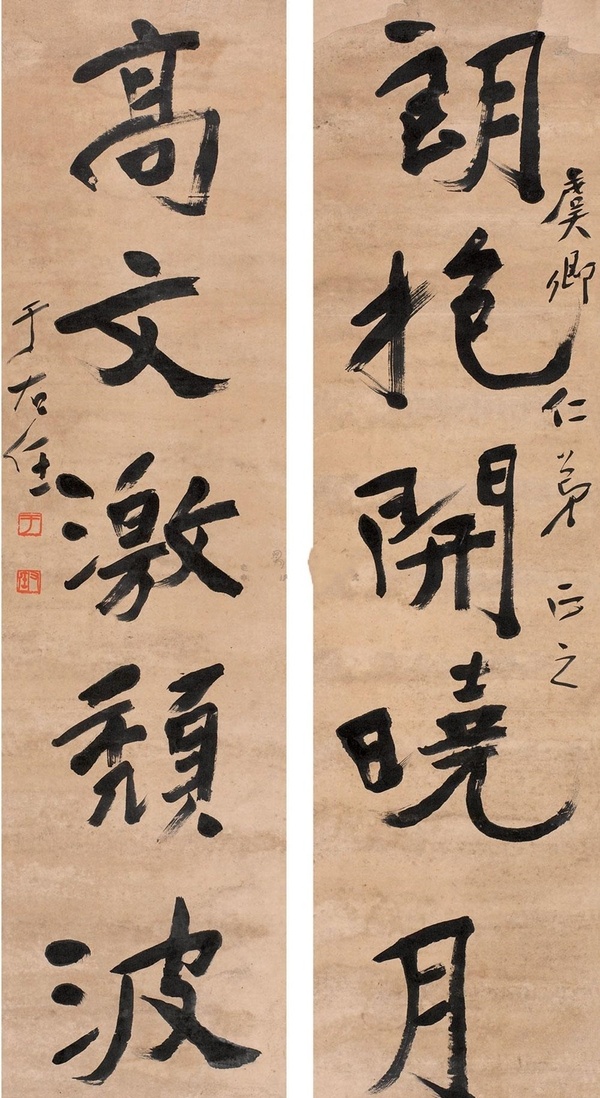 朗抱開曉月
虞卿仁弟正之
高文激頹波
于右任